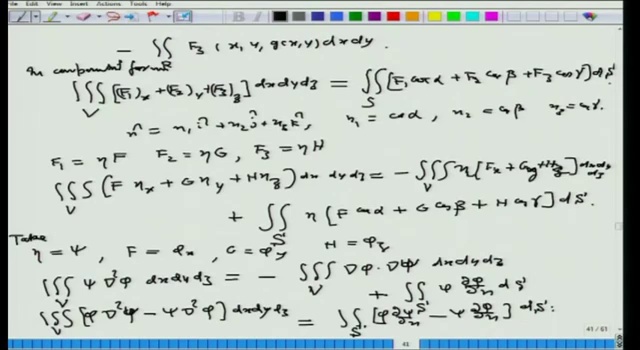 File Edit View Insert Actions Tools Help
− ∬_R F₃ (x, y, g(x,y)) dx dy.
In component form
∭_V [(F₁)_x + (F₂)_y + (F₃)_z] dx dy dz = ∬_S [F₁ cos α + F₂ cos β + F₃ cos γ] dS
n̂ = n₁ î + n₂ ĵ + n₃ k̂, n₁ = cos α, n₂ = cos β n₃ = cos γ.
F₁ = ηF F₂ = ηG, F₃ = ηH
∭_V (F η_x + G η_y + H η_z) dx dy dz = − ∭_V η [F_x + G_y + H_z] dx dy dz
+ ∬_S η [F cos α + G cos β + H cos γ] dS.
Take η = ψ, F = φ_x, G = φ_y H = φ_z
∭_V ψ ∇²φ dx dy dz = − ∭_V ∇φ · ∇ψ dx dy dz
+ ∬_S ψ ∂φ/∂n dS
∭_V [φ ∇²ψ − ψ ∇²φ] dx dy dz = ∬_S [φ ∂ψ/∂n − ψ ∂φ/∂n] dS.
41 / 61
41